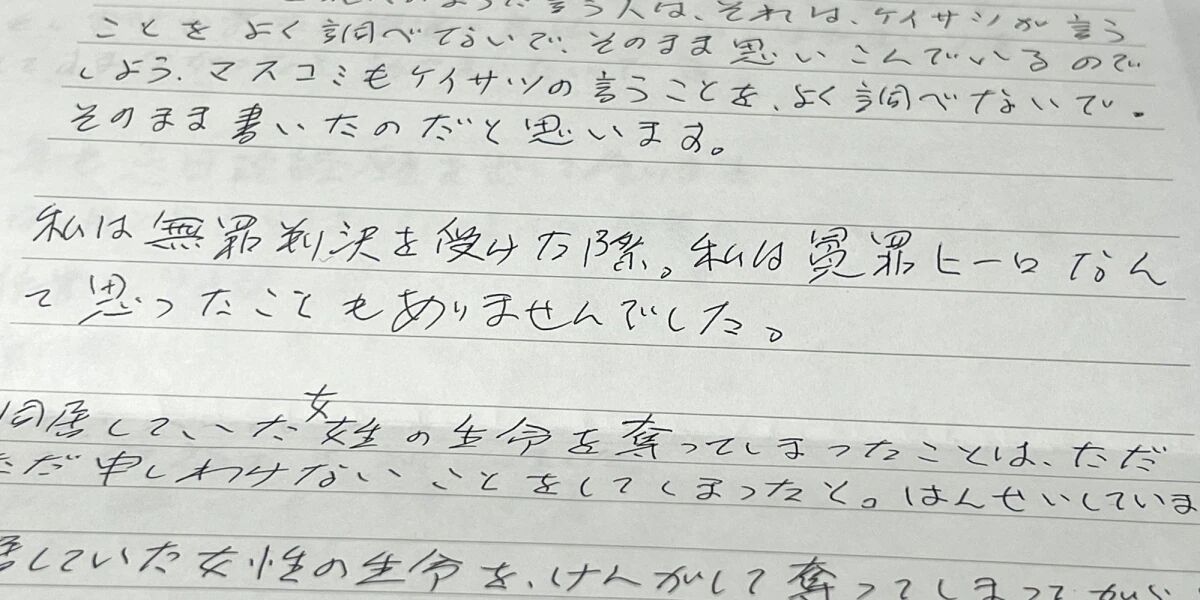 言う人は、それは、ケイサツが言う
ことをよく調べてないで、そのまま思いこんでいるので
しよう。マスコミもケイサツの言うことを、よく調べないで、
そのまま書いたのだと思います。
私は無罪判決を受けた際。私は冤罪ヒーロなん
て思ったこともありませんでした。
同居していた女性の生命を奪ってしまったことは、ただ
ただ申しわけないことをしてしまったと。はんせいしていま
居していた女性の生命を、けんかして奪ってしまってから